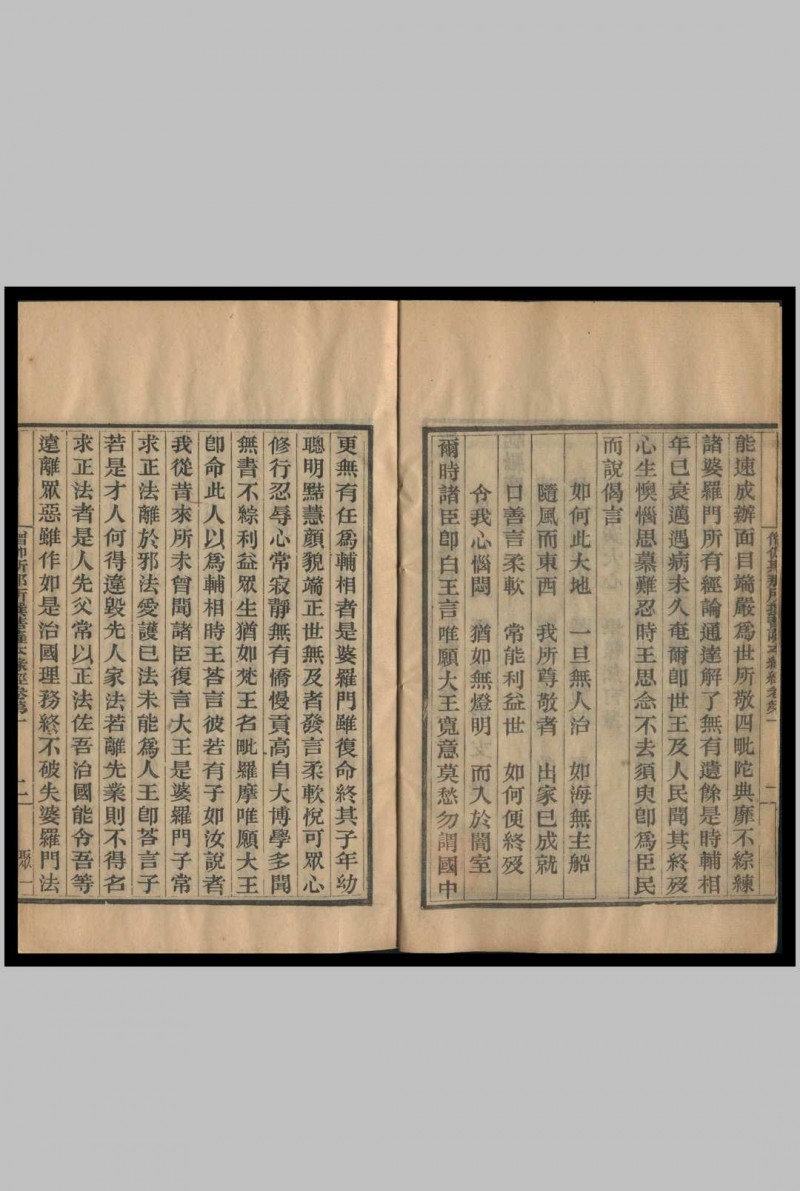 能速成辦面目端嚴爲世所敬四毗陀典靡不綜練
諸婆羅門所有經論通達解了無有遺餘是時輔相
年已衰邁遇病未久奄爾卽世王及人民聞其終歿
心生懊惱思慕難忍時王思念不去須臾卽爲臣民
而說偈言
如何此大地　一旦無人治　如海無主船
隨風而東西　我所尊敬者　出家已成就
口善言柔軟　常能利益世　如何便終歿
令我心惱悶　猶如無燈明　而入於闇室
爾時諸臣卽白王言唯願大王寬意莫愁勿謂國中
更無有任爲輔相者是婆羅門雖復命終其子年幼
聰明黠慧顏貌端正世無及者發言柔軟悅可眾心
修行忍辱心常寂靜無有憍慢貢高自大博學多聞
無書不綜利益眾生猶如梵王名毗羅摩唯願大王
卽命此人以爲輔相時王答言彼若有子如汝說者
我從昔來所未曾聞諸臣復言大王是婆羅門子常
求正法離於邪法愛護已法未能爲人王卽答言子
若是才人何得違毀先人家法若離先業則不得名
求正法者是人先父常以正法佐吾治國能令吾等
遠離眾惡雖作如是治國理務終不破失婆羅門法